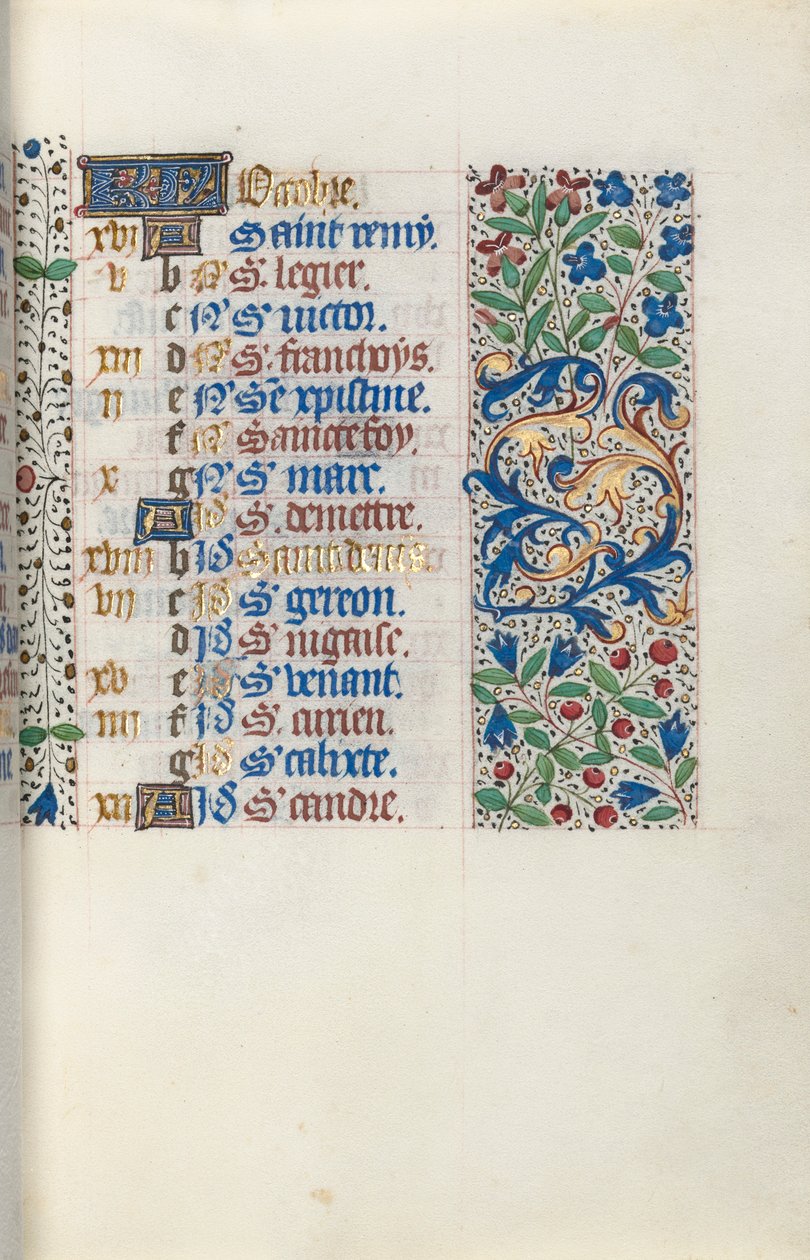 KL Octobre.
xvi A Saint remy.
v b N S. legier.
c N S victor.
xiii d N S. franchoys.
ii e N Se xpistine.
f N Saincte foy.
x g N S marc.
A Id S. demettre.
xviii b Id Saint denis.
vii c Id S gereon.
d Id S nigaise.
xv e Id S venant.
iiii f Id S. aurien.
g Id S calixte.
xii A Id S candre.